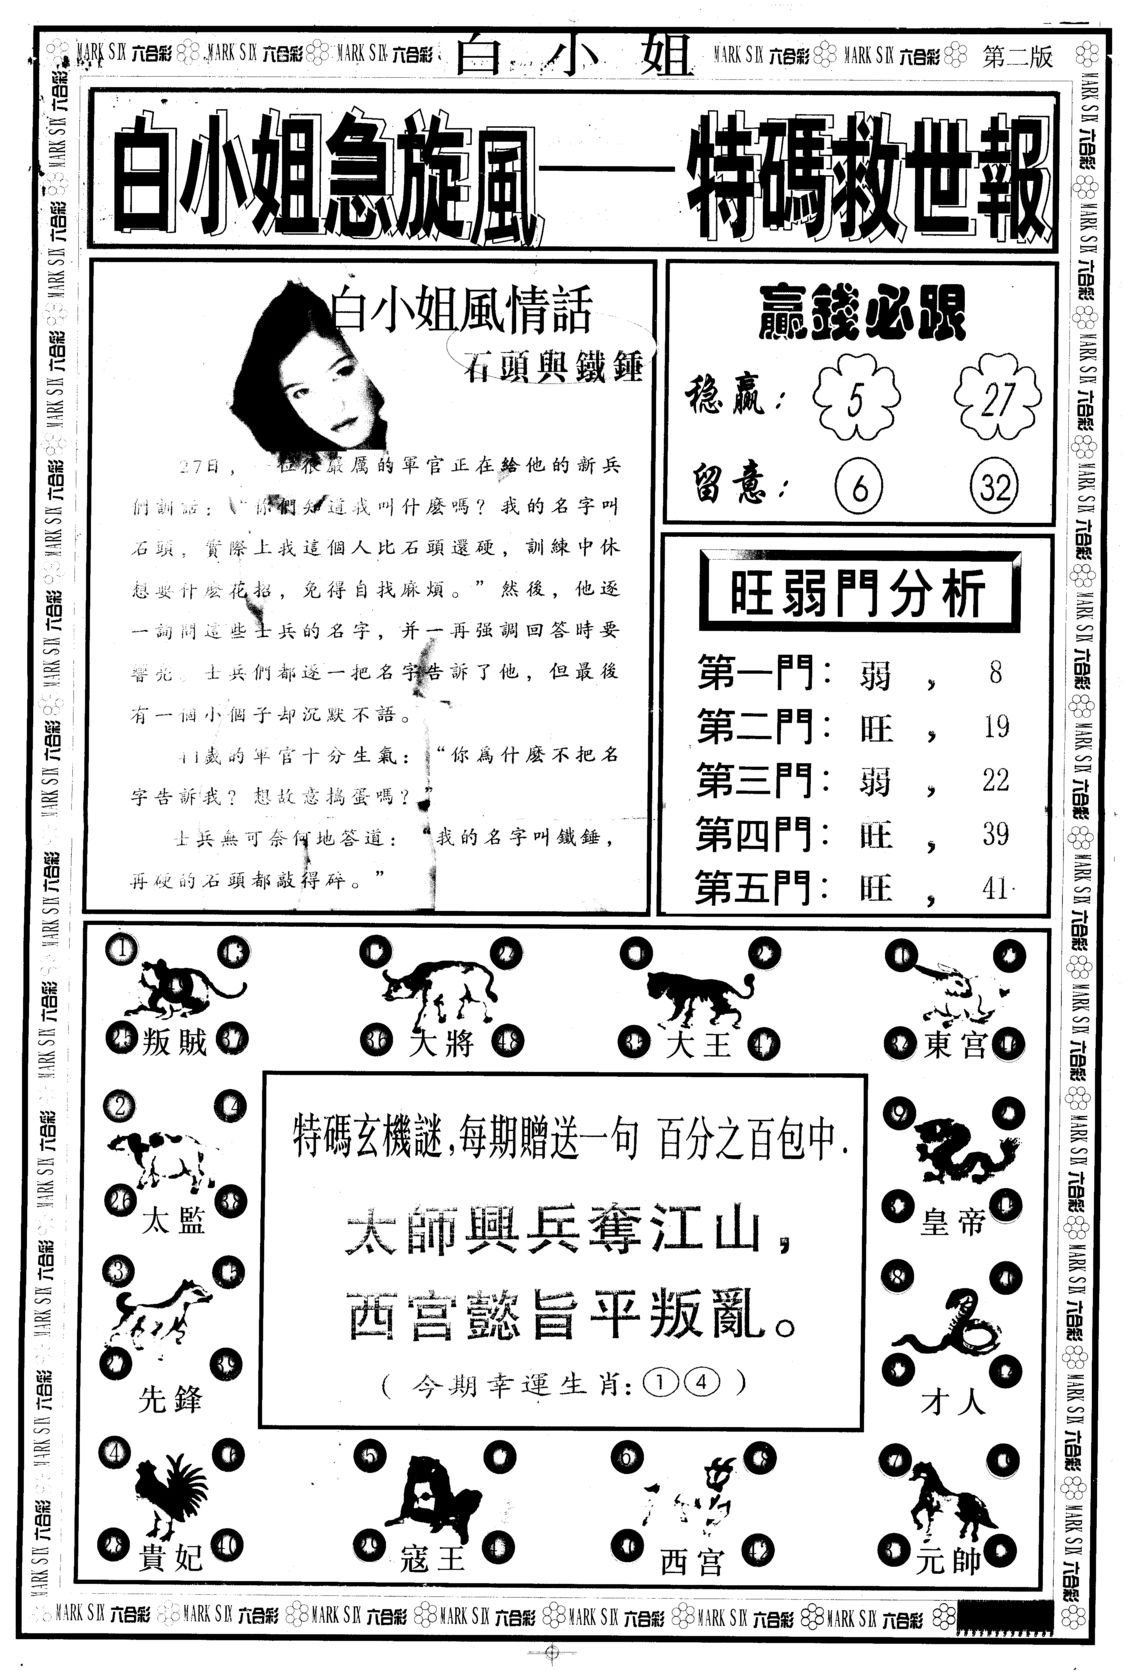 MARK SIX 六合彩 MARK SIX 六合彩 MARK SIX 六合彩 白小姐 MARK SIX 六合彩 MARK SIX 六合彩 第二版
白小姐急旋風——特碼救世報
白小姐風情話
石頭與鐵錘
27日，一位很嚴厲的軍官正在給他的新兵
們訓話：“你們知道我叫什麼嗎？我的名字叫
石頭，實際上我這個人比石頭還硬，訓練中休
想要什麼花招，免得自找麻煩。”然後，他逐
一詢問這些士兵的名字，并一再强調回答時要
響亮。士兵們都逐一把名字告訴了他，但最後
有一個小個子却沉默不語。
41歲的軍官十分生氣：“你爲什麼不把名
字告訴我？想故意搗蛋嗎？”
士兵無可奈何地答道：“我的名字叫鐵錘，
再硬的石頭都敲得碎。”
贏錢必跟
稳赢： 5 27
留意： 6 32
旺弱門分析
第一門：弱， 8
第二門：旺， 19
第三門：弱， 22
第四門：旺， 39
第五門：旺， 41
1 13
25 叛賊 37
12 24
36 大將 48
23
35 大王 47
34 東宫
2 14
26 太監 38
9
皇帝
3 15
27 先鋒 39
8
才人
特碼玄機謎，每期贈送一句 百分之百包中．
太師興兵奪江山，
西宫懿旨平叛亂。
（今期幸運生肖：①④）
4 16
28 貴妃 40
5
29 寇王
6 18
西宫 42
7
元帥
MARK SIX 六合彩 MARK SIX 六合彩 MARK SIX 六合彩 MARK SIX 六合彩 MARK SIX 六合彩 MARK SIX 六合彩 MARK SIX 六合彩